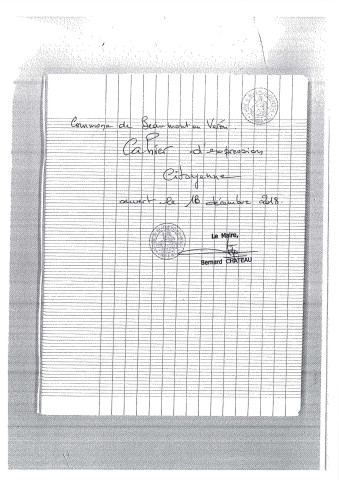 Commune de Beaumont en Véron.
Cahier d'expression
Citoyenne
ouvert le 18 décembre 2018.
Le Maire,
Bernard CHATEAU